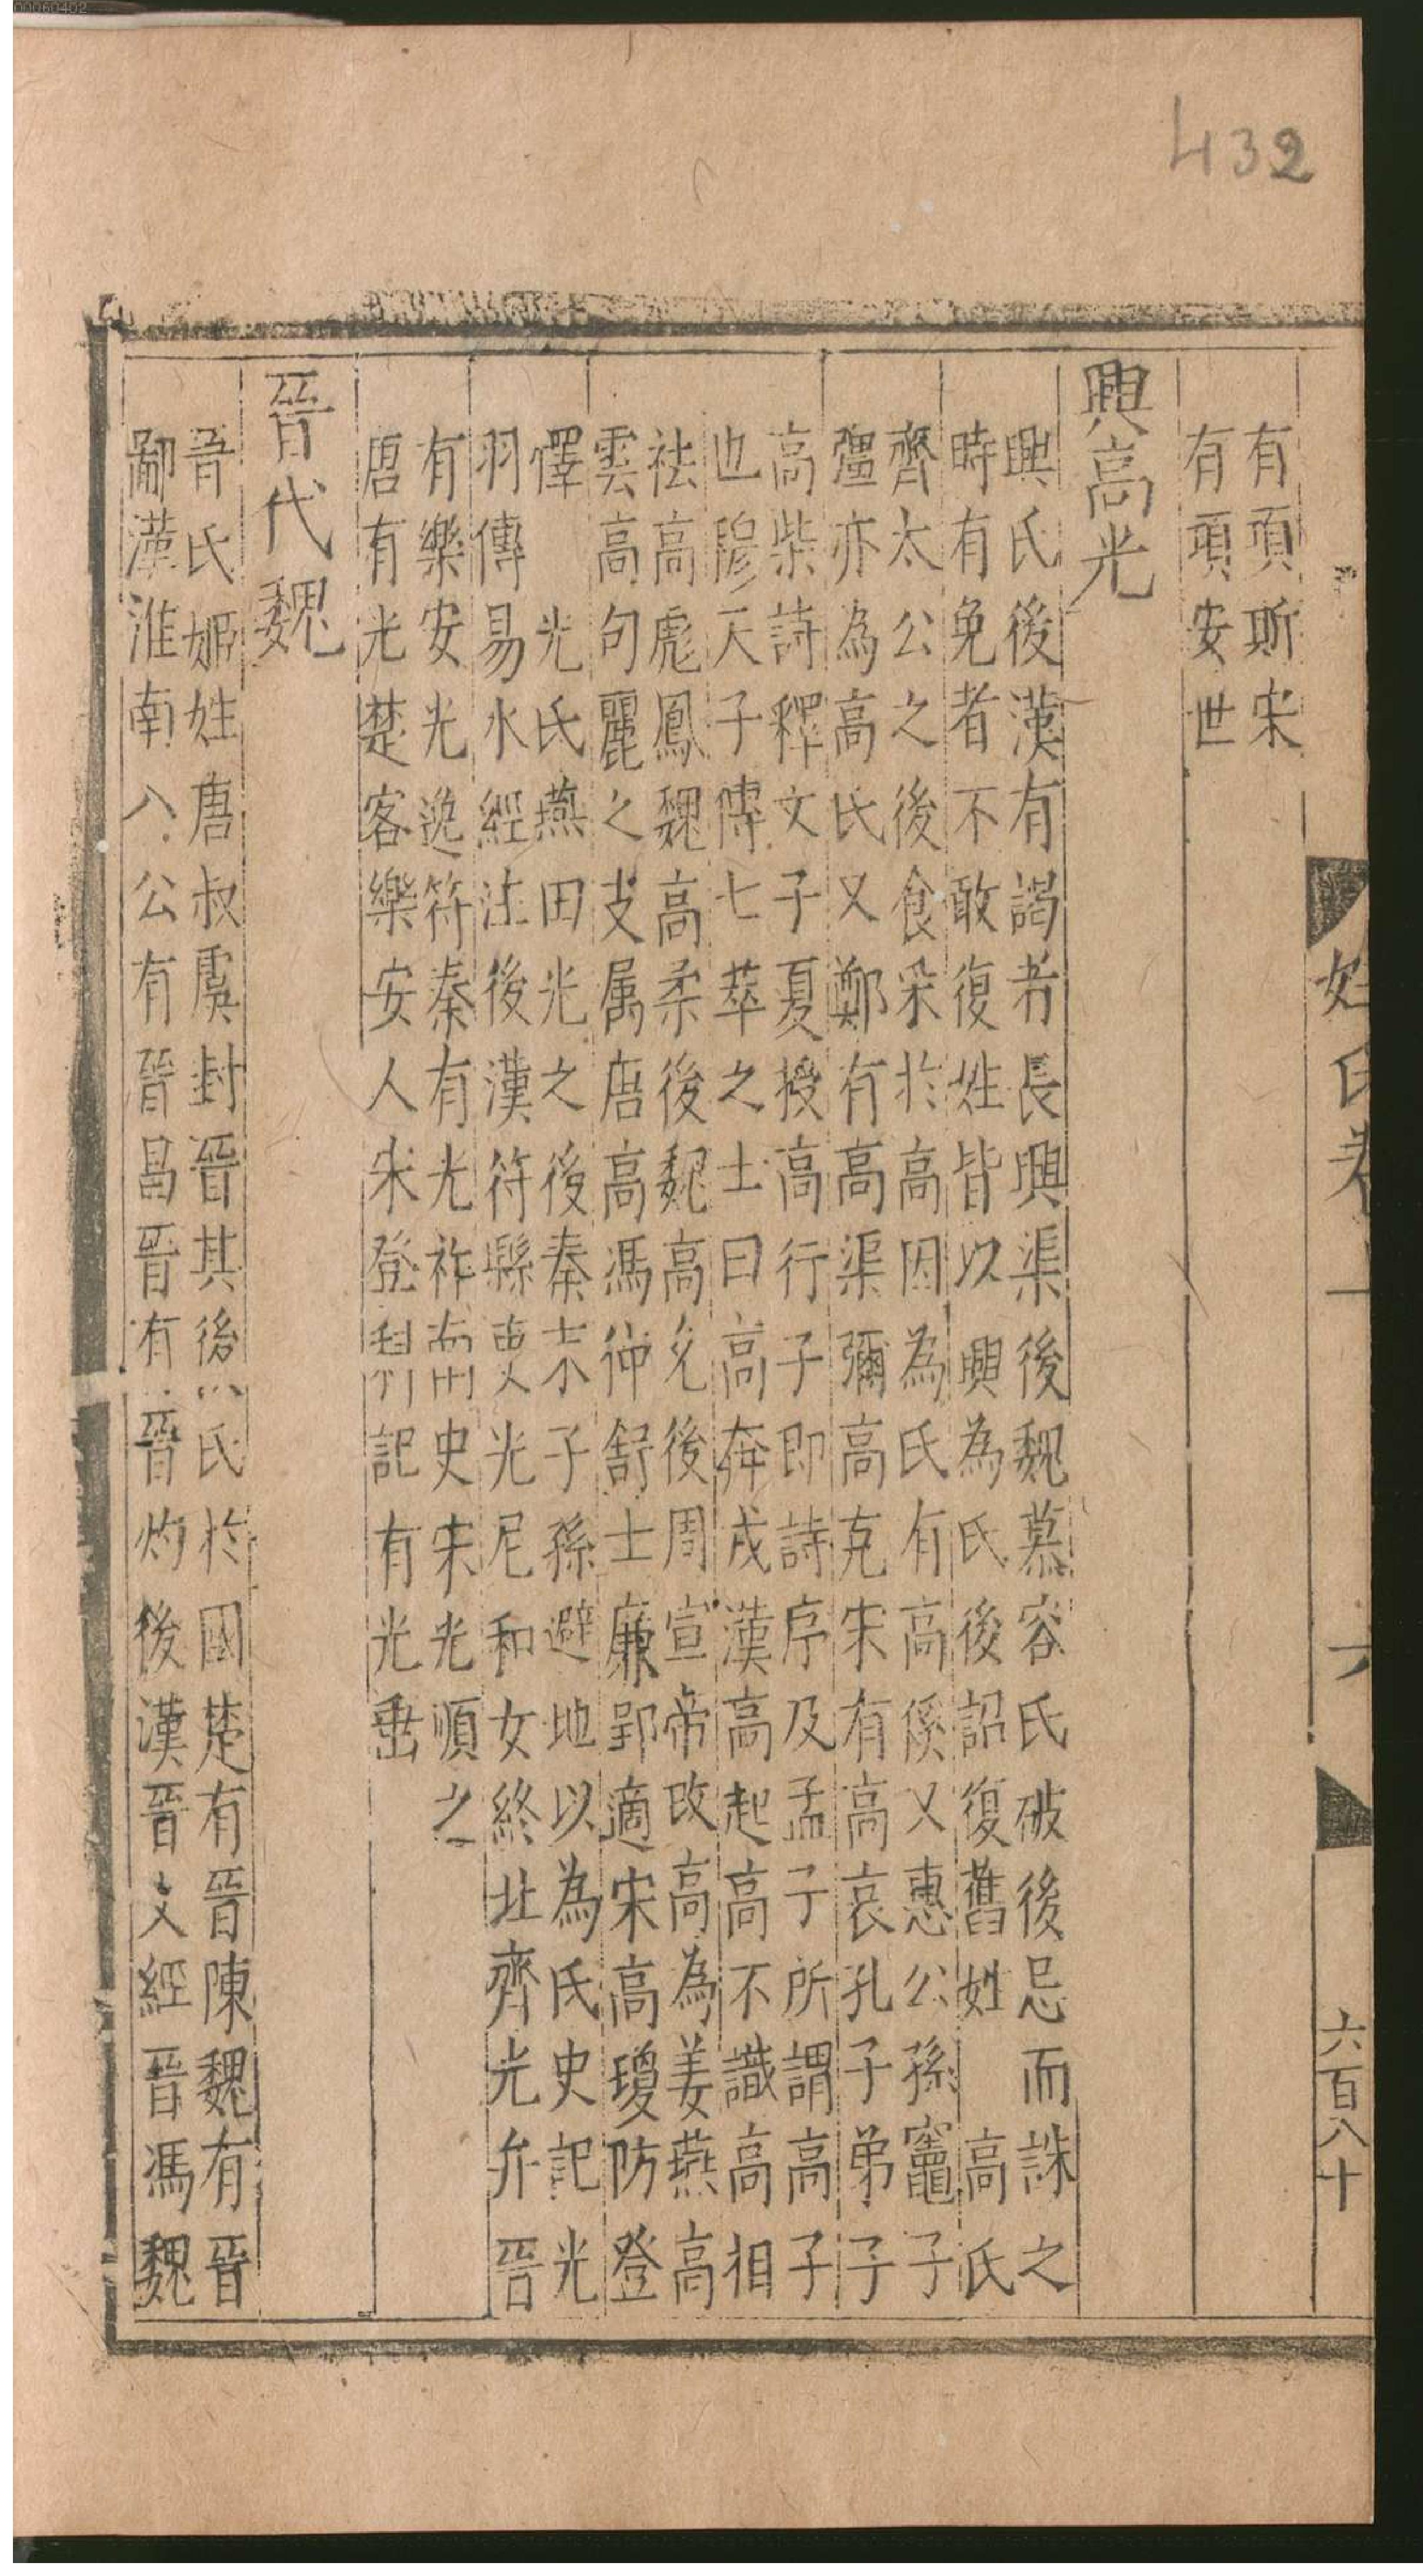 00060402
432
有項斯宋
有項安世
興高光
興氏後漢有謁者長興渠後魏慕容氏破後忌而誅之
時有免者不敢復姓皆以興為氏後詔復舊姓 高氏
齊太公之後食采於高因為氏有高傒又惠公孫竈子
彊亦為高氏又鄭有高渠彌高克宋有高哀孔子弟子
高柴詩釋文子夏授高行子即詩序及孟子所謂高子
也穆天子傳七萃之士曰高奔戎漢高起高不識高相
祛高彪鳳魏高柔後魏高允後周宣帝改高為姜燕高
雲高句麗之支属唐高馮仲舒士廉郢適宋高瓊防登
懌 光氏燕田光之後秦末子孫避地以為氏史記光
羽傳易水經注後漢符縣吏光尼和女終北齊光弁晉
有樂安光逸符秦有光祚南史宋光順之
唐有光楚客樂安人宋登科記有光垂
晉代魏
晉氏姬姓唐叔虞封晉其後以氏於國楚有晉陳魏有晉
鄙漢淮南八公有晉昌晉有晉灼後漢晉文經晉馮魏
姓氏卷
六百八十